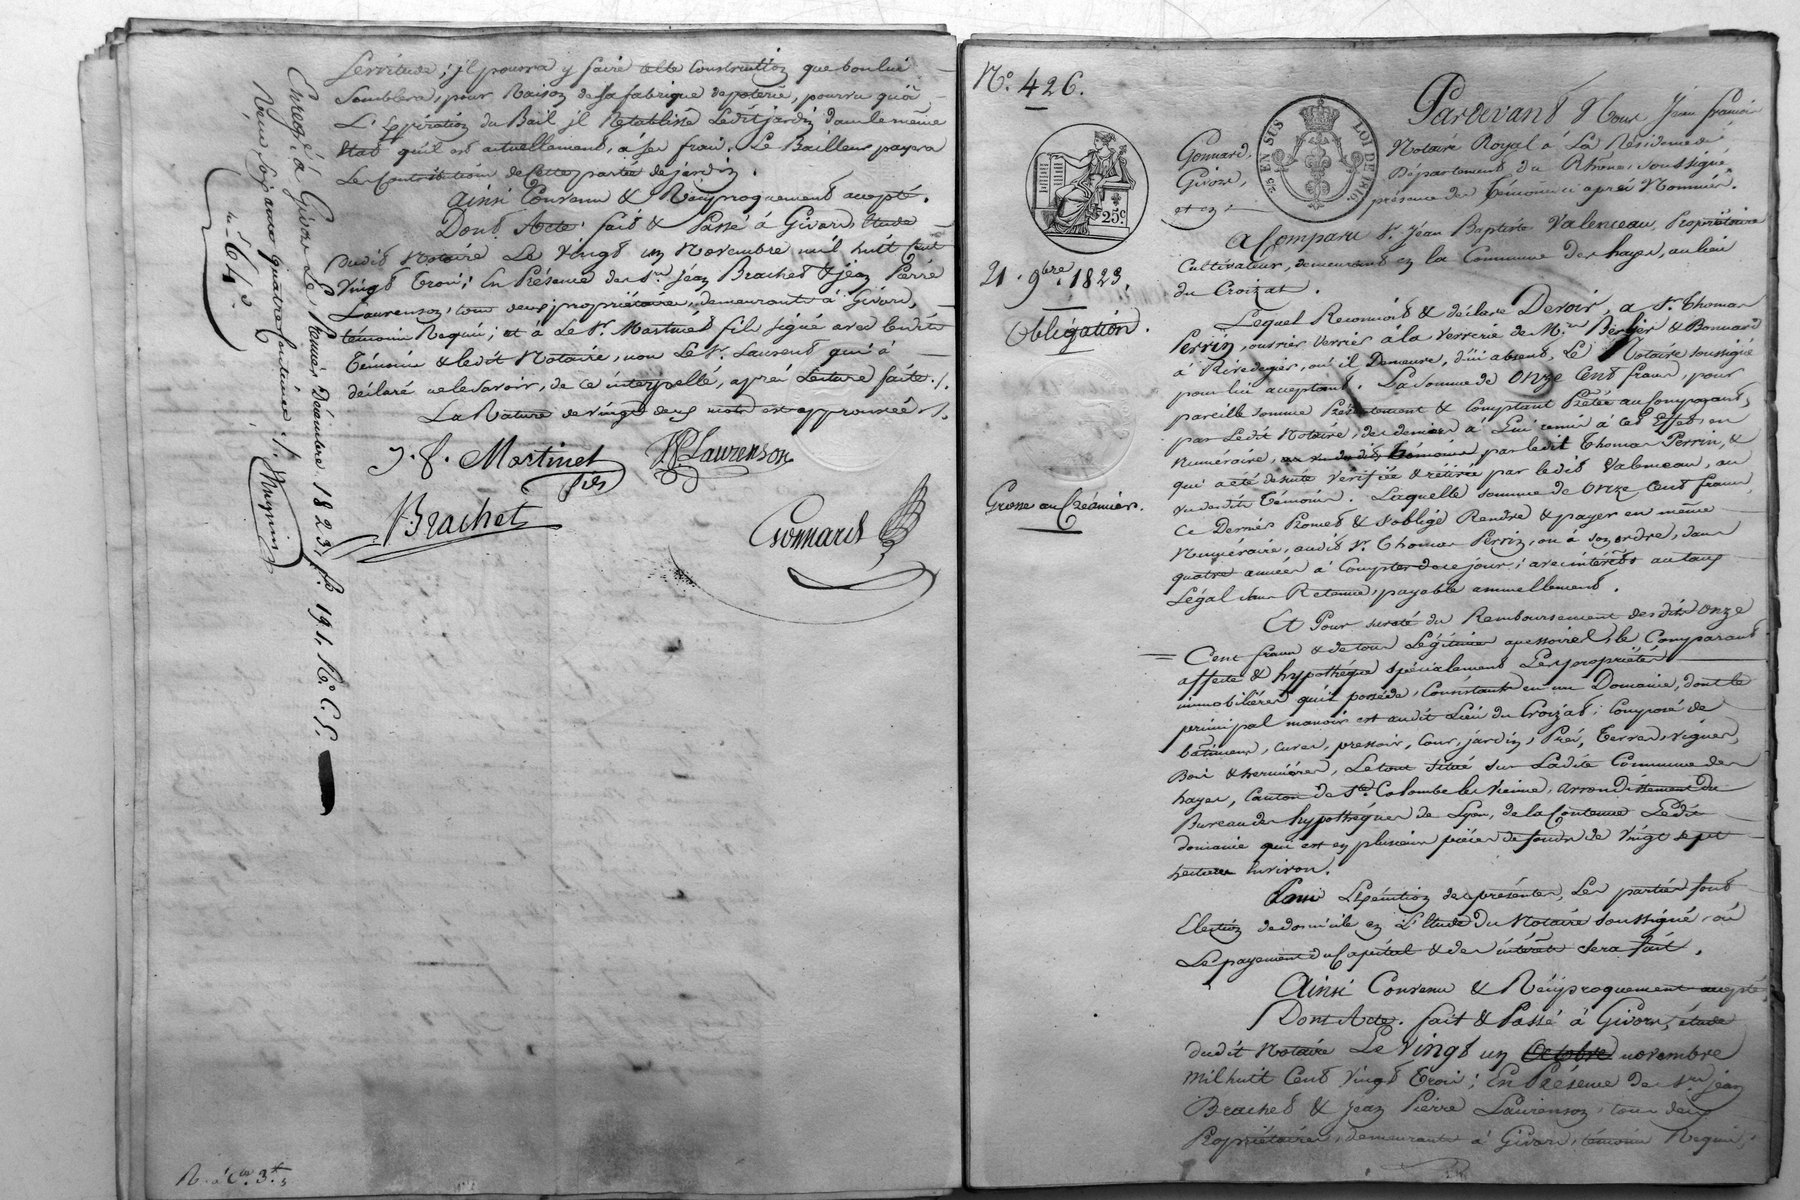 Servitude; il pourra y faire telle Construction que bon lui
Semblera, pour Raison de sa fabrique de poterie, pourvu qu'à
L'Expiration du Bail il Rétablisse Ledit jardin dans le même
état qu'il est actuellement, à ses frais. Le Bailleur payera
Les Contributions de cette partie de jardin.
Ainsi Convenu & Réciproquement accepté.
Dont Acte, fait & Passé à Givors, étude
dudit Notaire Le Vingt un Novembre mil huit Cent
Vingt Trois; En Présence de Srs Jean Brachet & Jean Pierre
Laurenson, tous deux propriétaires, demeurants à Givors,
témoins Requis; et a Le Sr. Martinet fils signé avec lesdits
Témoins & ledit Notaire, non Le Sr. Laurent qui a
déclaré ne le savoir, de ce interpellé, après Lecture faite ./.
La Rature de vingt deux mots est approuvée ./.
J. f. Martinet
fils
JP Laurenson
Brachet
Gonnard
Enregé. à Givors Le Premier Décembre 1823, fo. 191. Ro. C. 5.
Reçu
quatre centimes ./.
5 64
No. 426.
21. 9bre. 1823.
Obligation.
Grosse au Créancier.
25 EN SUS
LOI DE 1816
25c.
Pardevant Nous Jean francois
Gonnard, Notaire Royal à La Résidence de
Givors, Département du Rhône, soussigné,
et en présence des Témoins ci après Nommés.
A Comparu Sr. Jean Baptiste Valenceau, Propriétaire
Cultivateur, demeurant en la Commune des hayes, au lieu
du Croizat.
Lequel Reconnoit & déclare Devoir, a Sr. Thomas
Perrin, ouvrier verrier à la verrerie de Mrs. Berlier & Bonnard
à Rivedegier, où il Demeure, d'ici absent, Le Notaire soussigné
pour lui acceptant. La Somme de Onze Cent francs, pour
pareille somme Présentement & Comptant Prêtée au Comparant,
par Ledit Notaire, des deniers à Lui remis à cet Effet, en
Numéraire, par ledit Thomas Perrin, &
qui a été de suite vérifiée & retirée par ledit Valenceau, au
vu desdits Témoins. Laquelle somme de Onze Cent francs
Ce Dernier Promet & s'oblige Rendre & payer en même
Numéraire, audit Sr. Thomas Perrin, ou à son ordre, dans
quatre années à Compter de ce jour; avec intérêts au taux
Légal sans Retenue, payable annuellement.
Et Pour sureté du Remboursement desdits Onze
Cent francs & de tous Légitimes accessoires, le Comparant
affecte & hypothéque spécialement Les propriétés
immobilières qu'il possède, Consistants en un Domaine, dont le
principal manoir est audit Lieu du Croizat; Composé de
bâtiments, cuves, pressoir, Cour, jardin, Prés, Terres, vignes,
Bois & hermières, Le tout situé sur Ladite Commune des
hayes, Canton de Ste. Colombe les Vienne, arrondissement du
Bureau des hypothéques de Lyon, de la Contenue Ledit
domaine qui est en plusieurs pièces de fonds de Vingt sept
hectares Environ.
Pour L'Exécution des présentes, Les parties font
Election de domicile en L'étude du Notaire soussigné, où
Le payement du Capital & des intérêts sera fait.
Ainsi Convenu & Réciproquement accepté.
Dont Acte. fait & Passé à Givors, étude
dudit Notaire Le Vingt un Octobre novembre
mil huit Cent Vingt Trois; En Présence de Srs Jean
Brachet & Jean Pierre Laurenson, tous deux
Propriétaires, demeurants à Givors, témoins Requis,